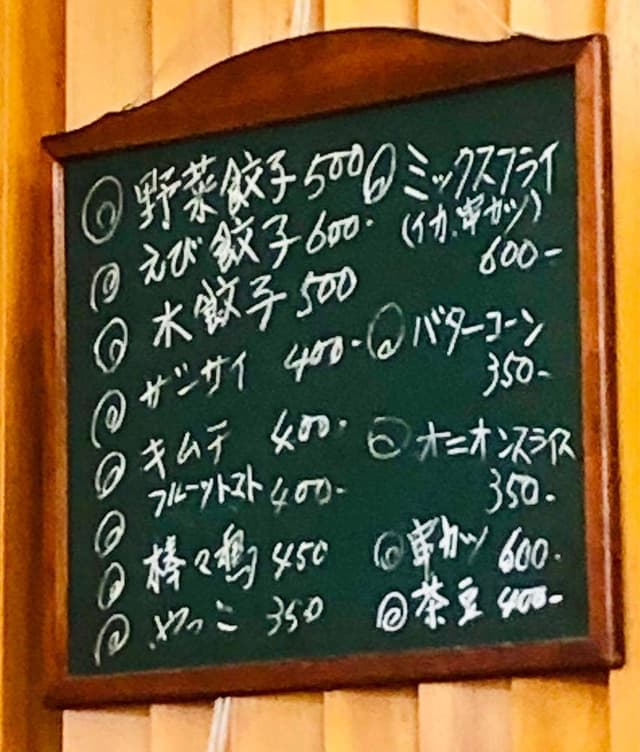 野菜餃子 500
えび餃子 600-
水餃子 500
ザーサイ 400-
キムチ 400-
フルーツトマト 400-
棒々鶏 450
やっこ 350
ミックスフライ
(イカ、串カツ)
600-
バターコーン
350-
オニオンスライス
350-
串カツ 600-
茶豆 400-